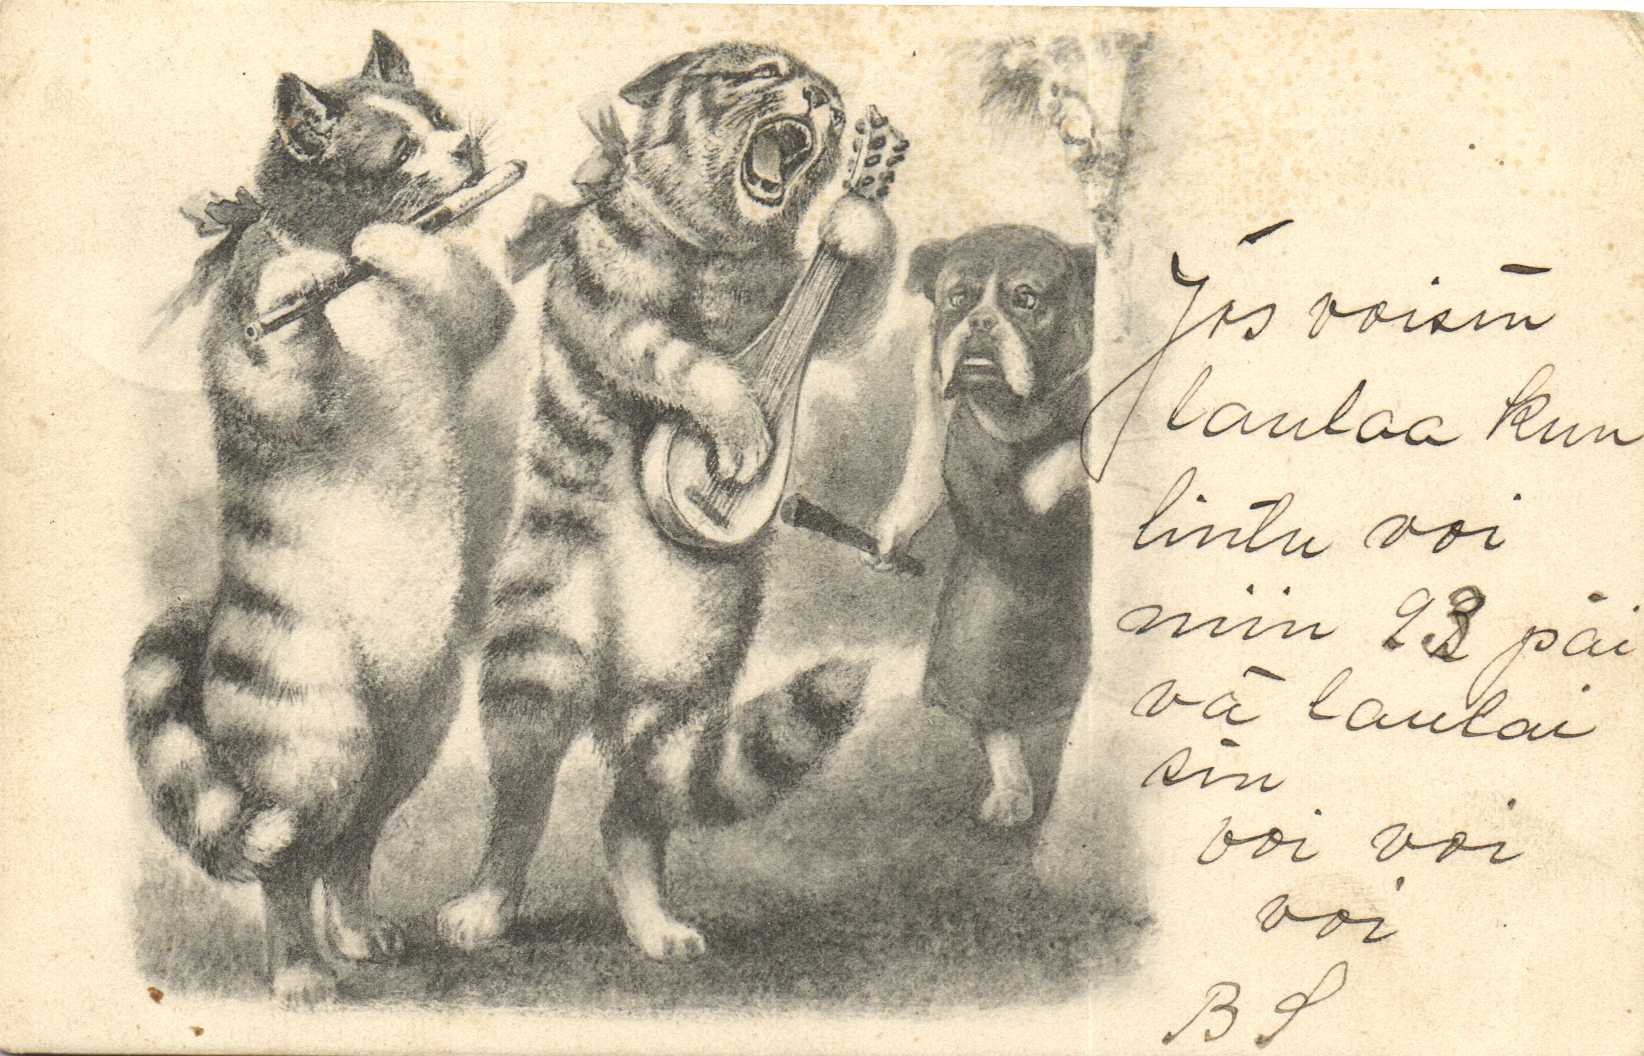 Jos voisin
laulaa kun
lintu voi
niin 23 päi
vä laulai
sin
voi voi
voi
B S